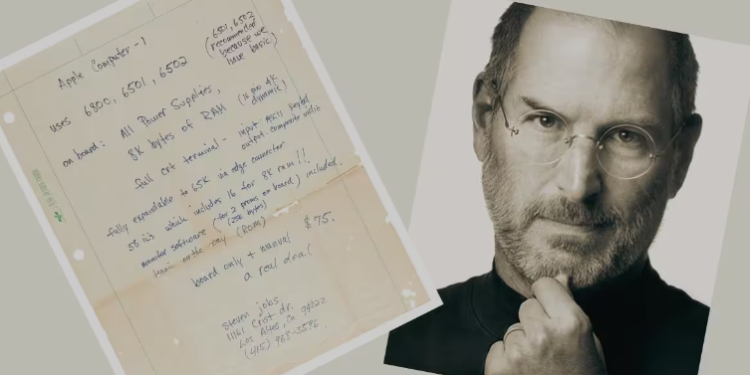 Apple Computer-1
uses 6800, 6501, 6502
(6501, 6502
recommended
because we
have basic)
on board: All Power Supplies,
8K bytes of RAM (16 pin 4K
dynamic)
full crt terminal - input: ASCII keybd
output: composite video
fully expandable to 65K via edge connector
58 IC's which includes 16 for 8K ram!!.
monitor software (for 2 proms on board) included.
(256 bytes)
(ROM)
board only + manual $75.
a real deal
steven jobs
11161 Crist dr.
Los Altos, Ca
(415)